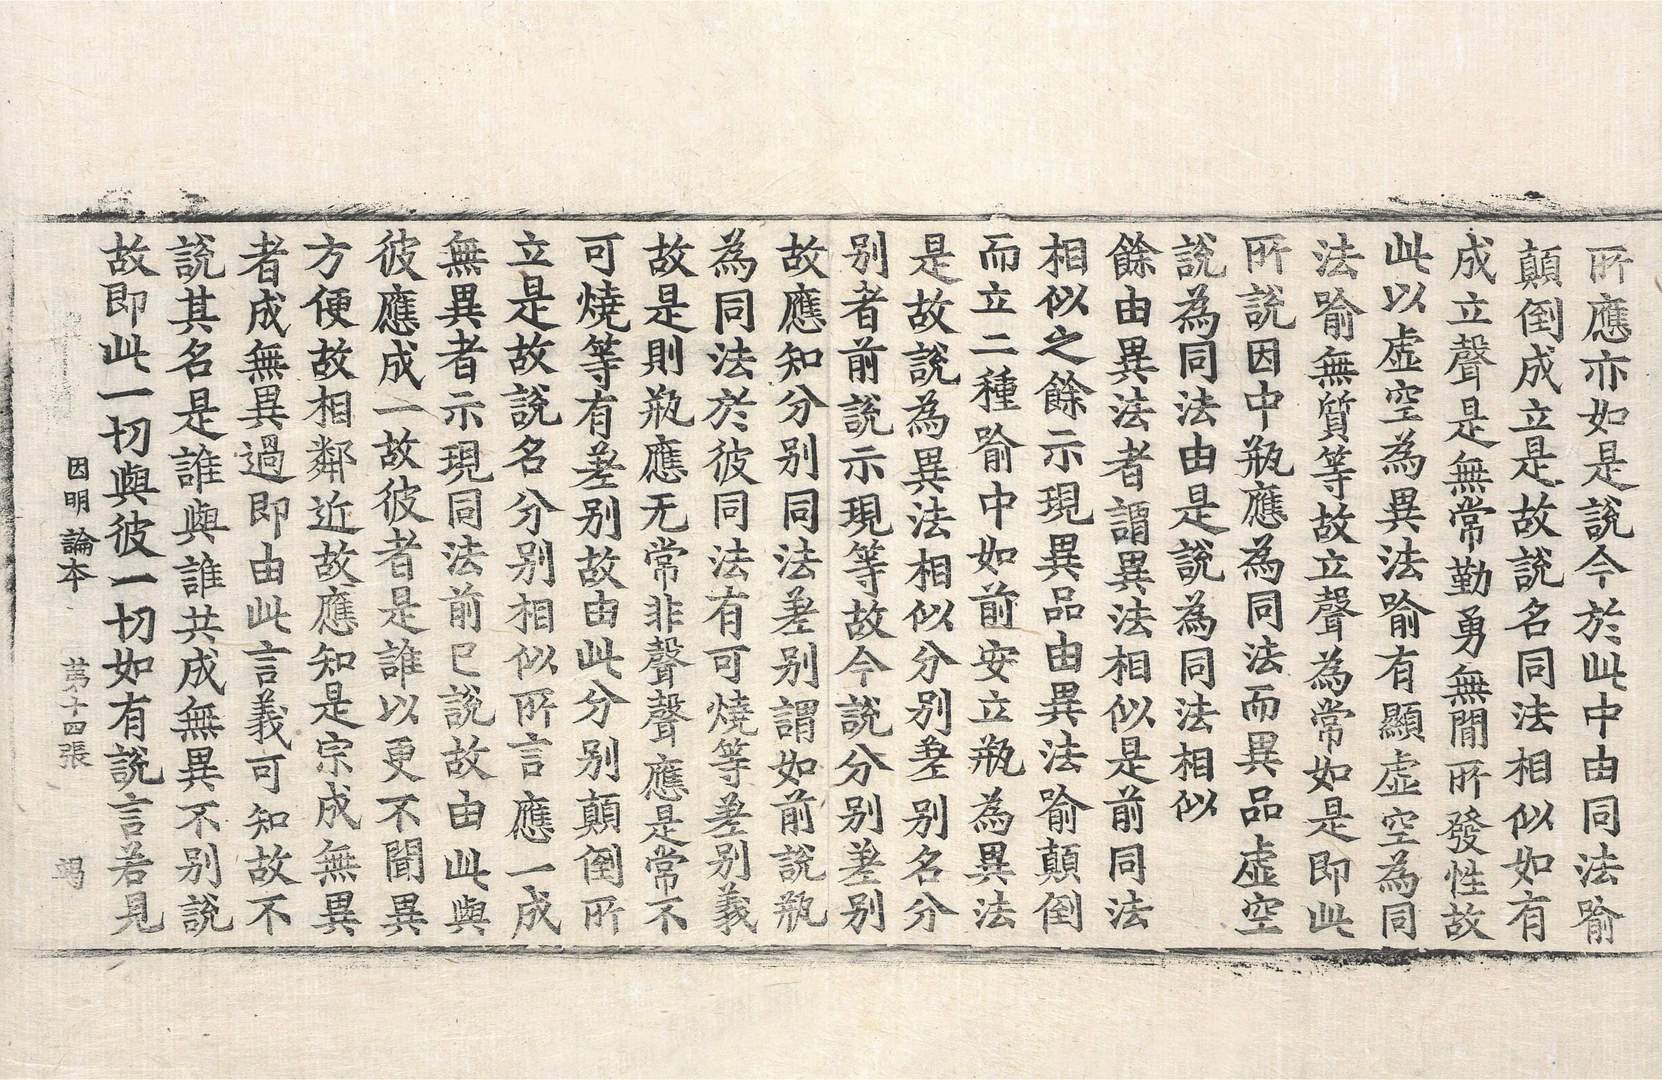 所應亦如是說今於此中由同法喻
顛倒成立是故說名同法相似如有
成立聲是無常勤勇無閒所發性故
此以虛空為異法喻有顯虛空為同
法喻無質等故立聲為常如是即此
所說因中瓶應為同法而異品虛空
說為同法由是說為同法相似
餘由異法者謂異法相似是前同法
相似之餘示現異品由異法喻顛倒
而立二種喻中如前安立瓶為異法
是故說為異法相似分別差別名分
別者前說示現等故今說分別差別
故應知分別同法差別謂如前說瓶
為同法於彼同法有可燒等差別義
故是則瓶應无常非聲聲應是常不
可燒等有差別故由此分別顛倒所
立是故說名分別相似所言應一成
無異者示現同法前已說故由此與
彼應成一故彼者是誰以更不聞異
方便故相鄰近故應知是宗成無異
者成無異過即由此言義可知故不
說其名是誰與誰共成無異不別說
故即此一切與彼一切如有說言若見
因明論本　第十四張　竭